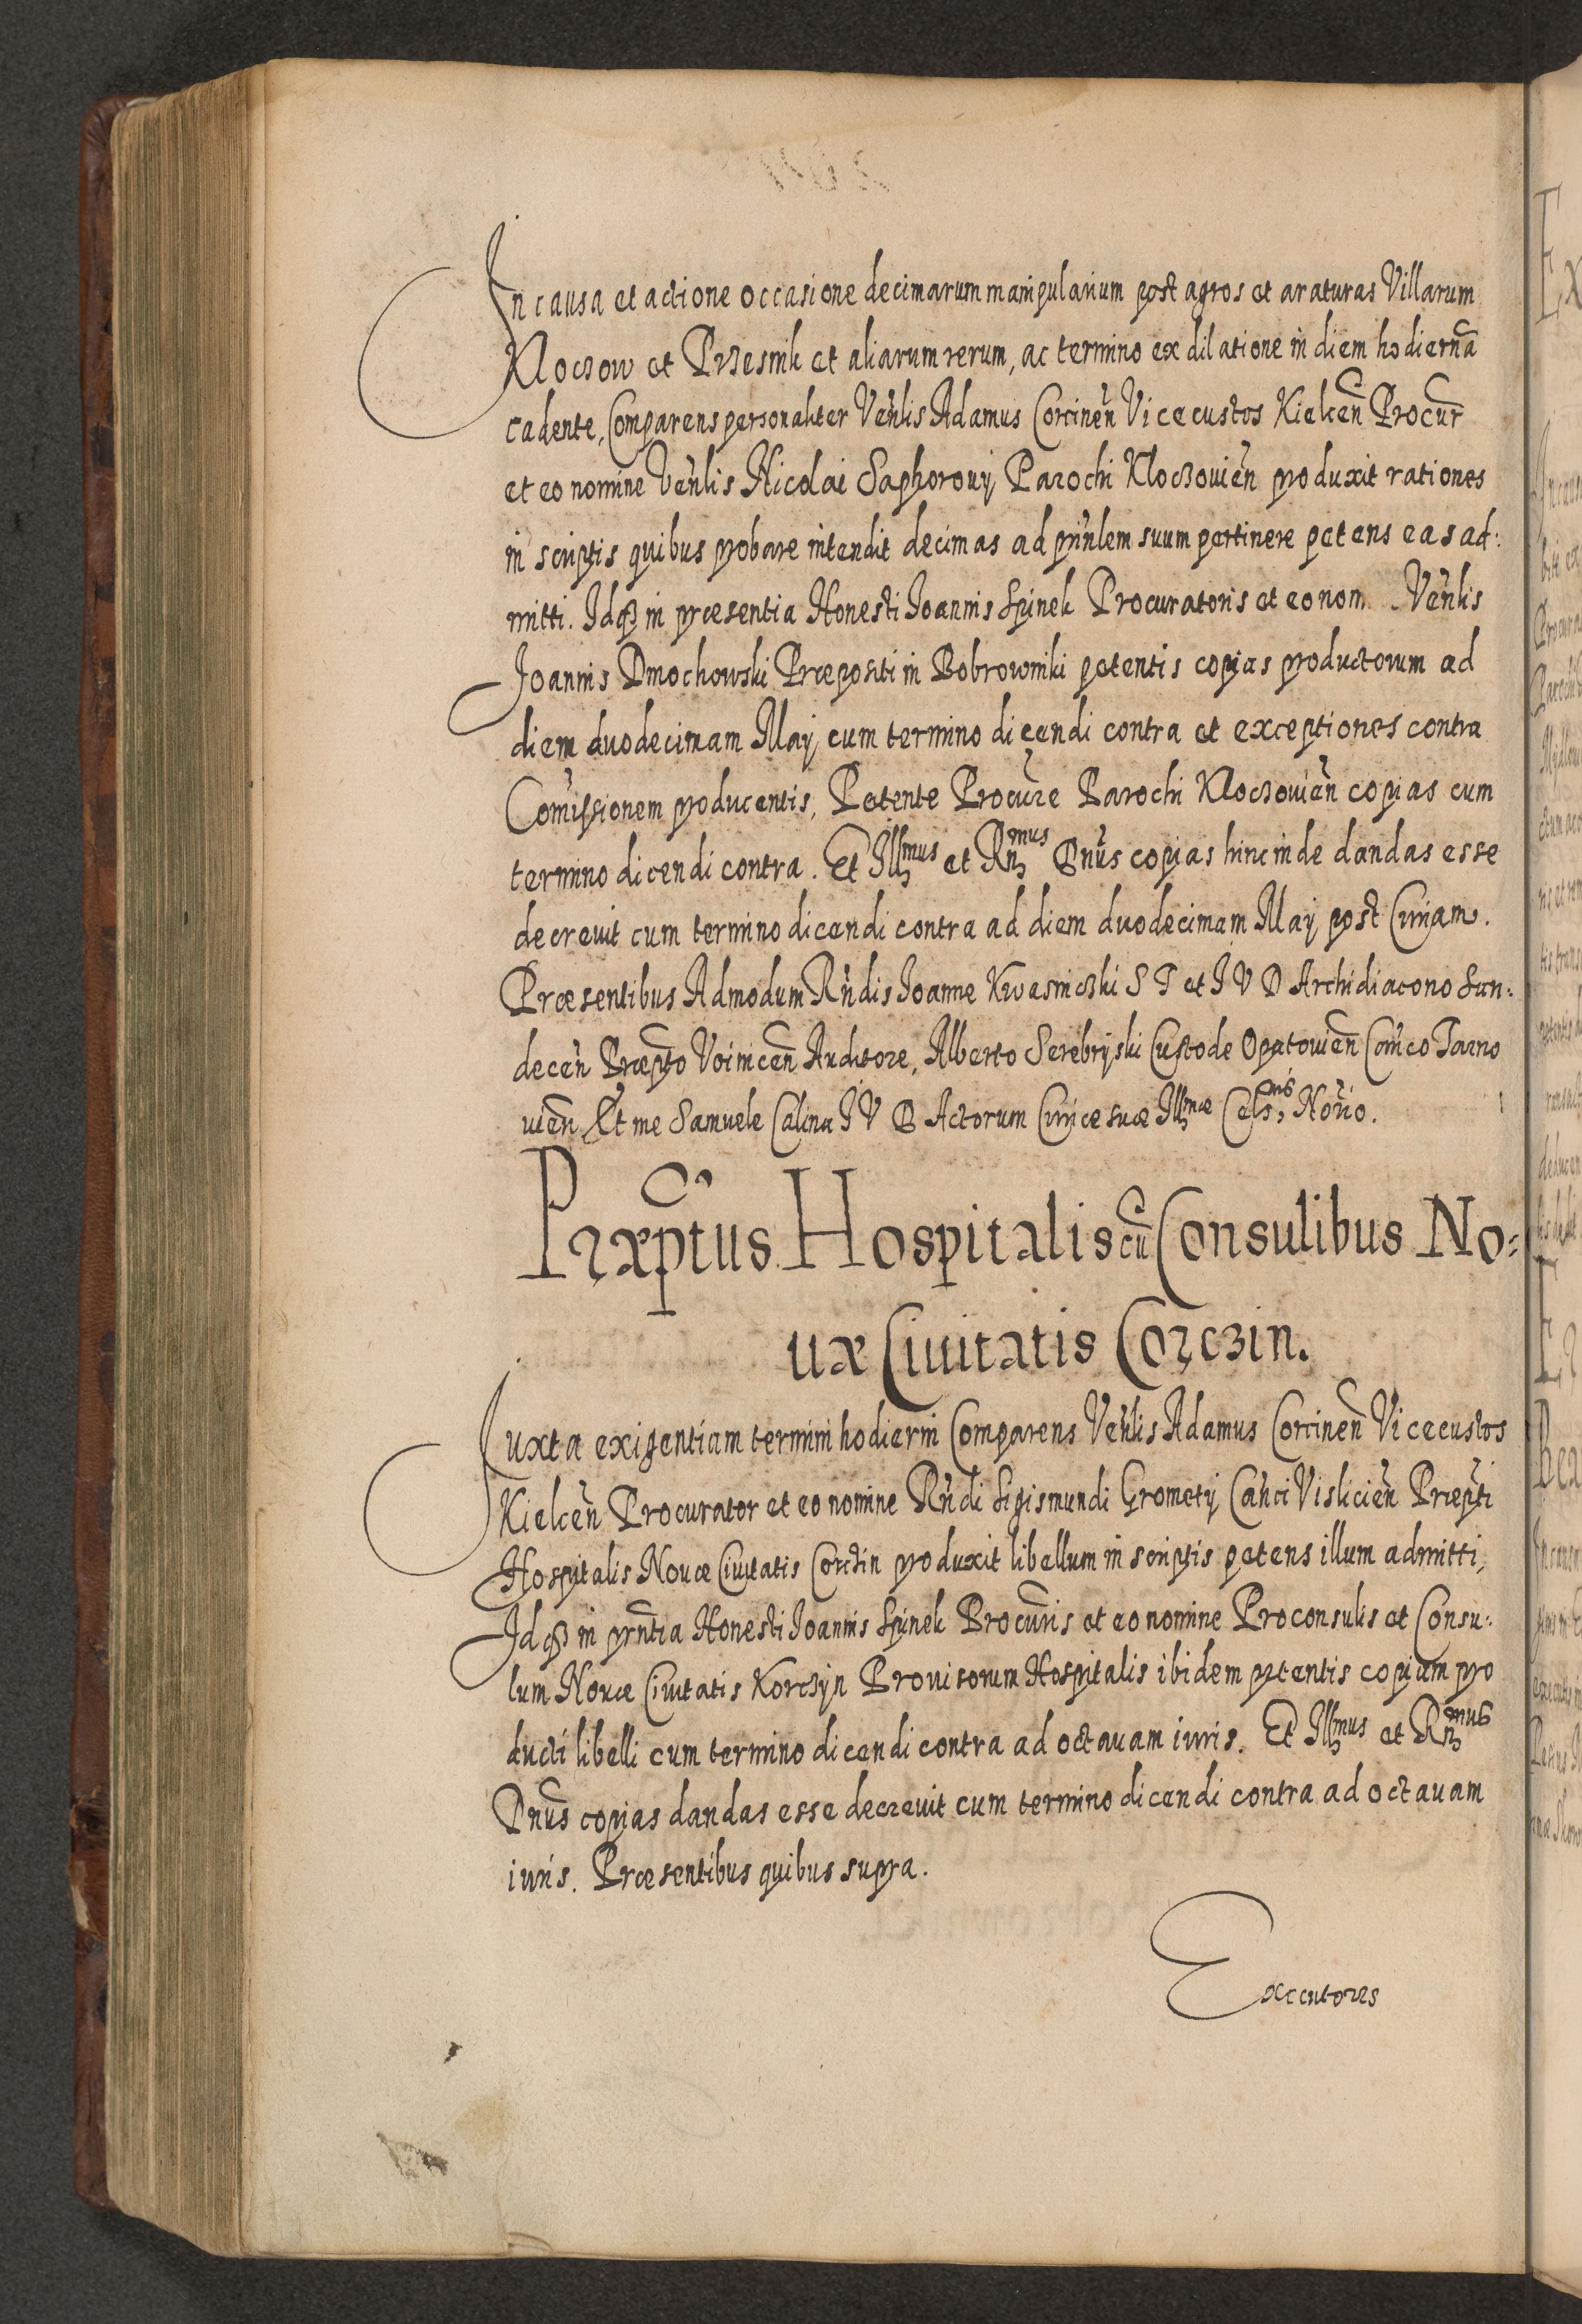 In causa et actione occasione decimarum manipularium post agros et araturas Villarum
Kloczow et Przesnik et aliarum rerum, ac termino ex dilatione in diem hodiernã
cadente, Comparens personaliter Veñlis Adamus Corcineñ Vicecustos Kielceñ Procur̃
et eo nomine Veñlis Nicolai Saphorovij Parochi Kloczovieñ produxit rationes
in scriptis quibus probare intendit decimas ad priñlem suum pertinere petens eas ad:
mitti. Idqȝ in præsentia Honesti Joannis Spinek Procuratoris et eo nom Veñlis
Joannis Dmochowski Præpositi in Bobrowniki petentis copias productorum ad
diem duodecimam Maij cum termino dicendi contra et exceptiones contra
Com̃issionem producentis, Petente Procur̃e Parochi Kloczovieñ copias cum
termino dicendi contra. Et Illmus et Rnmus Dnũs copias hincinde dandas esse
decrevit cum termino dicendi contra ad diem duodecimam Maij post Curiam.
Præsentibus Admodum Rñdis Joanne Kwasniczki S T et J V D Archidiacono San:
deceñ Præpto Voiniceñ Auditore, Alberto Serebrijski Custode Opatovieñ Cañico Tarno
vieñ Et me Samuele Calina J V D Actorum Curiæ suæ Illmæ Celsnis Notrio.
Præptus Hospitalis cũ Consulibus No:
uæ Ciuitatis Corczin.
Juxta exigentiam termini hodierni Comparens Veñlis Adamus Corcineñ Vicecustos
Kielceñ Procurator et eo nomine Rñdi Sigismundi Grometij Cañci Vislicieñ Præpti
Hospitalis Nouæ Ciuitatis Corczin produxit libellum in scriptis petens illum admitti,
Idqȝ in prñtia Honesti Joannis Spinek Procur̃is et eo nomine Proconsulis et Consu:
lum Nouæ Ciuitatis Korczijn Prouisorum Hospitalis ibidem petentis copiam pro
ducti libelli cum termino dicendi contra ad octauam iuris. Et Illmus et Rnmus
Dnũs copias dandas esse decrevit cum termino dicendi contra ad octauam
iuris. Præsentibus quibus supra.
Executores